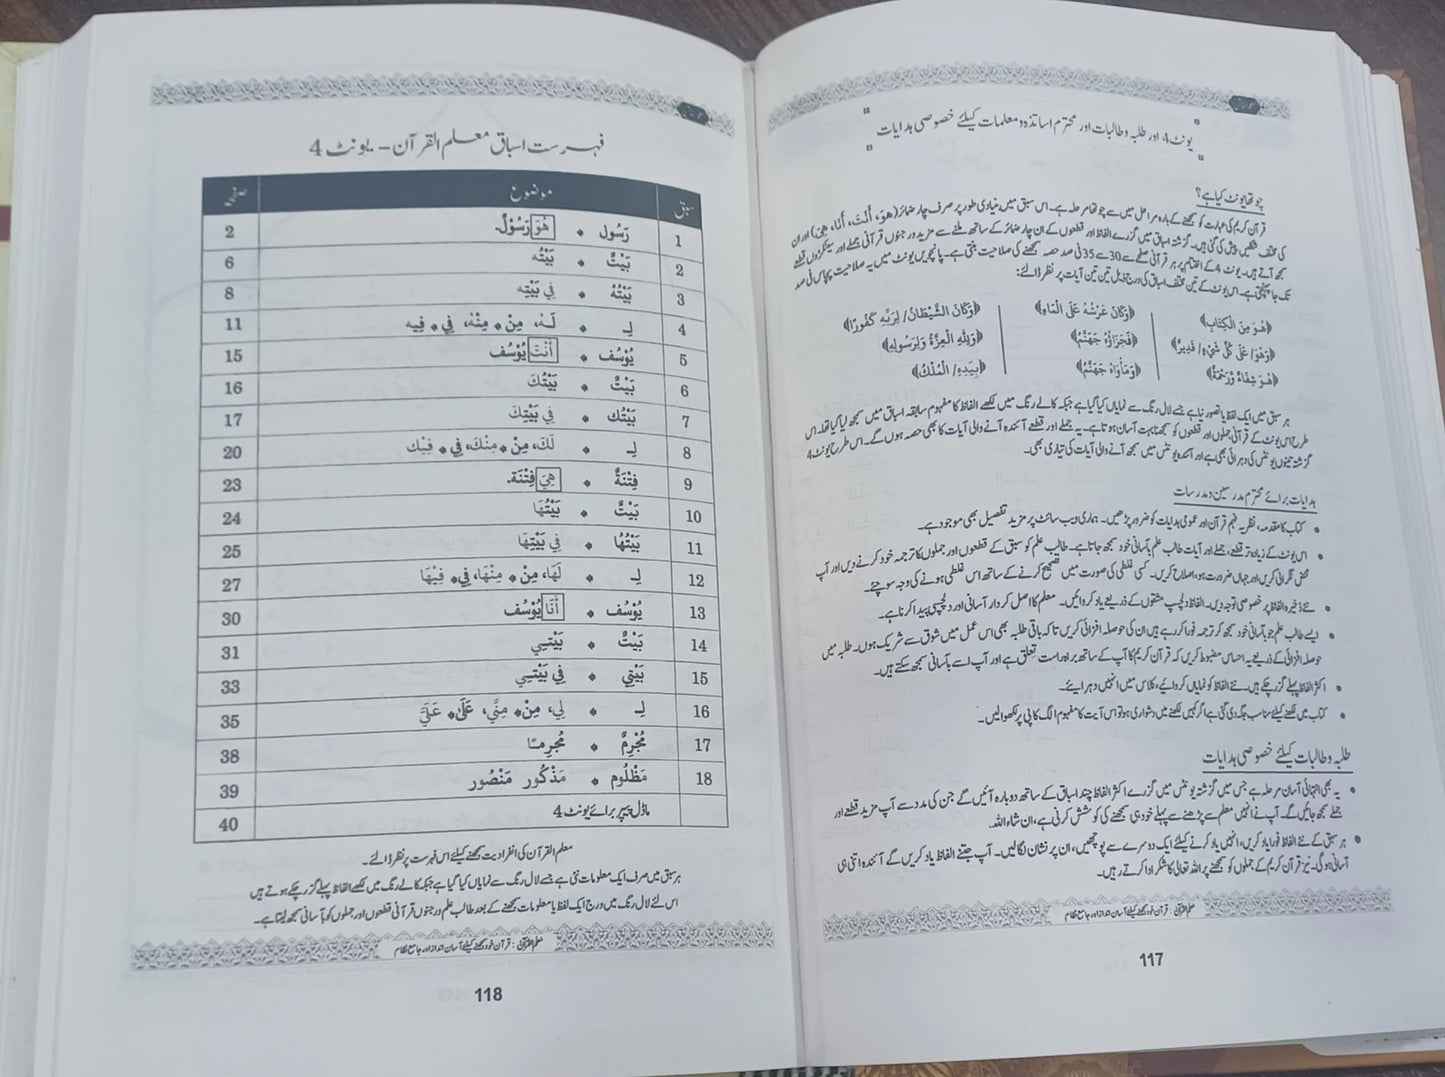 "یونٹ 4 اور طلبہ و طالبات اور محترم اساتذہ و معلمات کیلئے خصوصی ہدایات"
چوتھا یونٹ کیا ہے؟
قرآن کریم کی عبارت کو سمجھنے کے بارہ مراحل میں سے چوتھا مرحلہ ہے۔ اس سبق میں بنیادی طور پر صرف چار ضمائر (هُوَ، أَنْتَ، أَنَا، هِيَ) اور ان
کی مختلف شکلیں پیش کی گئی ہیں۔ گزشتہ اسباق میں گزرے الفاظ اور قطعوں کے ان چار ضمائر کے ساتھ ملنے سے مزید درجنوں قرآنی جملے اور سینکڑوں قطعے
سمجھ آتے ہیں۔ یونٹ 4 کے اختتام پر ہر قرآنی صفحے سے 30 سے 35 فی صد حصہ سمجھنے کی صلاحیت بنتی ہے۔ پانچویں یونٹ میں یہ صلاحیت پچاس فی صد
تک جا پہنچتی ہے۔ اس یونٹ کے تین مختلف اسباق کی درج ذیل تین تین آیات پر نظر ڈالئے:
﴿هُوَ مِنَ الْكِتَابِ﴾ ﴿وَكَانَ عَرْشُهُ عَلَى الْمَاءِ﴾ ﴿وَكَانَ الشَّيْطَانُ/ لِرَبِّهِ كَفُورًا﴾
﴿وَهُوَ/ عَلَى كُلِّ شَيْءٍ/ قَدِيرٌ﴾ ﴿فَجَزَاؤُهُ جَهَنَّمُ﴾ ﴿وَلِلَّهِ الْعِزَّةُ وَلِرَسُولِهِ﴾
﴿هُوَ شِفَاءٌ وَرَحْمَةٌ﴾ ﴿وَمَأْوَاهُ جَهَنَّمُ﴾ ﴿بِيَدِهِ/ الْمُلْكُ﴾
ہر سبق میں ایک لفظ یا تصور نیا ہے جسے لال رنگ سے نمایاں کیا گیا ہے جبکہ کالے رنگ میں لکھے الفاظ کا مفہوم سابقہ اسباق میں سمجھ لیا گیا تھا۔ اس
طرح اس یونٹ کے قرآنی جملوں اور قطعوں کو سمجھنا بہت آسان ہوتا ہے۔ یہ جملے اور قطعے آئندہ آنے والی آیات کا بھی حصہ ہوں گے۔ اس طرح یونٹ 4
گزشتہ تینوں یونٹس کی دہرائی بھی ہے اور آئندہ یونٹس میں سمجھ آنے والی آیات کی تیاری بھی۔
ہدایات برائے محترم مدرسین و مدرسات
• کتاب کا مقدمہ، نظریہ فہم قرآن اور عمومی ہدایات کو ضرور پڑھیں۔ ہماری ویب سائٹ پر مزید تفصیل بھی موجود ہے۔
• اس یونٹ کے زیادہ تر قطعے، جملے اور آیات طالب علم بآسانی خود سمجھ جاتا ہے۔ طالب علم کو سبق کے قطعوں اور جملوں کا ترجمہ خود کرنے دیں اور آپ
محض نگرانی کریں اور جہاں ضرورت ہو، اصلاح کریں۔ کسی غلطی کی صورت میں تصحیح کرنے کے ساتھ اس غلطی ہونے کی وجہ سوچئے۔
• نئے ذخیرہ الفاظ پر خصوصی توجہ دیں۔ الفاظ دلچسپ مشقوں کے ذریعے یاد کروائیں۔ معلم کا اصل کردار آسانی اور دلچسپی پیدا کرنا ہے۔
• ایسے طالب علم جو بآسانی خود سمجھ کر ترجمہ فوراً کر رہے ہیں ان کی حوصلہ افزائی کریں تاکہ باقی طلبہ بھی اس عمل میں شوق سے شریک ہوں۔ طلبہ میں
حوصلہ افزائی کے ذریعے یہ احساس مضبوط کریں کہ قرآن کریم کا آپ کے ساتھ براہ راست تعلق ہے اور آپ اسے بآسانی سمجھ سکتے ہیں۔
• اکثر الفاظ پہلے گزر چکے ہیں۔ نئے الفاظ کو نمایاں کروائیے، کلاس میں انہیں دہرایئے۔
• کتاب میں لکھنے کیلئے مناسب جگہ دی گئی ہے اگر کہیں لکھنے میں دشواری ہو تو اس آیت کا مفہوم الگ کاپی پر لکھوالیں۔
طلبہ و طالبات کیلئے خصوصی ہدایات
• یہ بھی انتہائی آسان مرحلہ ہے جس میں گزشتہ یونٹس میں گزرے اکثر الفاظ چند اسباق کے ساتھ دوبارہ آئیں گے جن کی مدد سے آپ مزید قطعے اور
جملے سمجھ جائیں گے۔ آپ نے انہیں معلم سے پڑھنے سے پہلے خود ہی سمجھنے کی کوشش کرنی ہے، ان شاء اللہ۔
• ہر سبق کے نئے الفاظ فوراً یاد کریں، انہیں یاد کرنے کیلئے ایک دوسرے سے پوچھیں، ان پر نشان لگالیں۔ آپ جتنے الفاظ یاد کریں گے آئندہ اتنی ہی
آسانی ہوگی۔ نیز قرآن کریم کے جملوں کو سمجھنے پر اللہ تعالیٰ کا شکر ادا کرتے رہیں۔
معلم القرآن: قرآن خود سمجھنے کیلئے آسان انداز اور جامع نظام
117
فہرست اسباق معلم القرآن – یونٹ 4
سبق موضوع صفحہ
1 رَسُول * هُوَ رَسُوْلٌ. 2
2 بَيْتٌ * بَيْتُه 6
3 بَيْتُهُ * فِي بَيْتِه 8
4 لِـ * لَهُ، مِنْ * مِنْهُ، فِي * فِيه 11
5 يُوْسُف * أَنْتَ يُوْسُف 15
6 بَيْتٌ * بَيْتُكَ 16
7 بَيْتُك * فِي بَيْتِكَ 17
8 لِـ * لَكَ، مِنْ * مِنْكَ، فِي * فِيْكَ 20
9 فِتْنَةٌ * هِيَ فِتْنَة. 23
10 بَيْتٌ * بَيْتُهَا 24
11 بَيْتُهَا * فِي بَيْتِهَا 25
12 لِـ * لَهَا، مِنْ * مِنْهَا، فِي * فِيْهَا 27
13 يُوْسُف * أَنَا يُوْسُف 30
14 بَيْتٌ * بَيْتِـي 31
15 بَيْتِي * فِي بَيْتِـي 33
16 لِـ * لِي، مِنْ * مِنِّي، عَلَى * عَلَيَّ 35
17 مُجْرِمٌ * مُجْرِمًا 38
18 مَظْلُوم * مَذْكُور مَنْصُور 39
ماڈل پیپر برائے یونٹ 4 40
معلم القرآن کی انفرادیت سمجھنے کیلئے اس فہرست پر نظر ڈالئے۔
ہر سبق میں صرف ایک معلومات نئی ہے جسے لال رنگ سے نمایاں کیا گیا ہے جبکہ کالے رنگ میں لکھے الفاظ پہلے گزر چکے ہوتے ہیں
اس لئے لال رنگ میں درج ایک لفظ یا معلومات سمجھنے کے بعد طالب علم درجنوں قرآنی قطعوں اور جملوں کو بآسانی سمجھ لیتا ہے۔
معلم القرآن: قرآن خود سمجھنے کیلئے آسان انداز اور جامع نظام
118